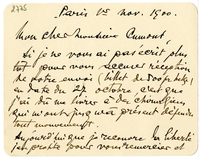 2775
Paris 1er nov. 1900.
Mon cher Monsieur Cumont,
Si je ne vous ai pas écrit plus
tôt pour vous accuser réception
de votre envoi (billet de 500 frcs),
en date du 27 octobre, c'est que
j'ai dû me livrer à des chirurgiens
qui m'ont jusqu'à présent défendu
tout mouvement.
Aujourd'hui que je recouvre la liberté
j'en profite pour vous remercier et